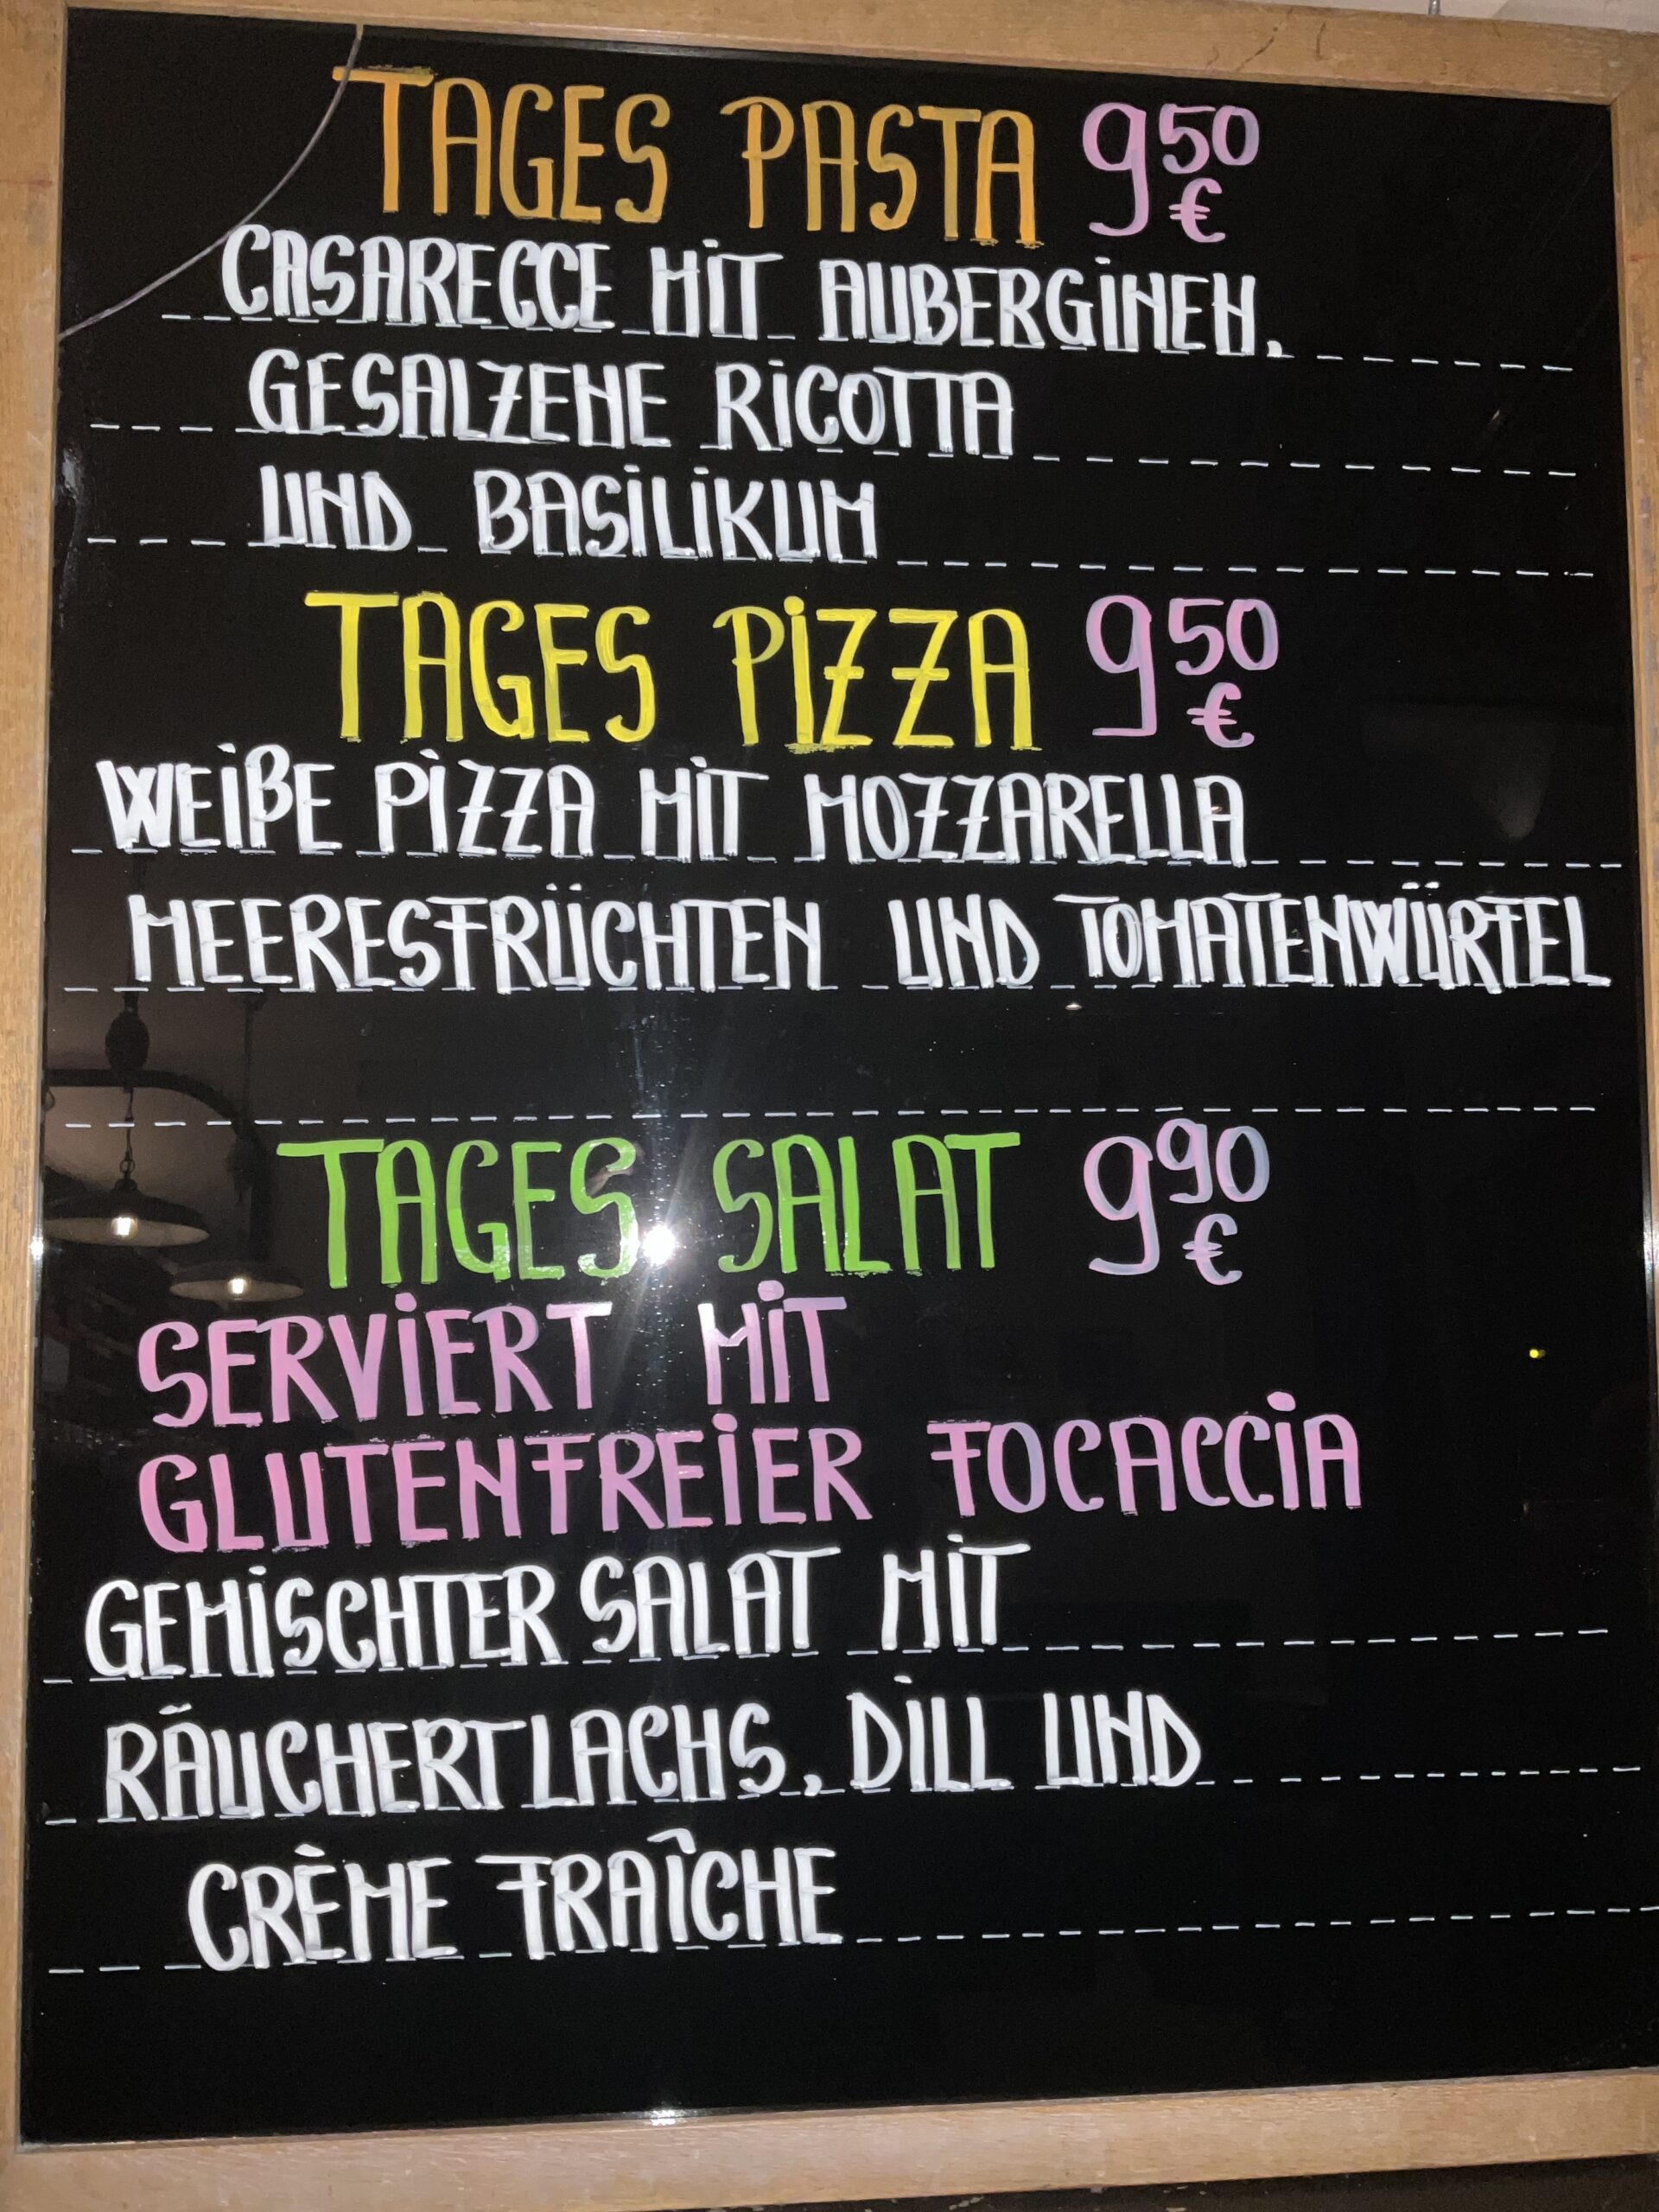 TAGES PASTA 9 50 €
CASARECCE MIT AUBERGINEN.
GESALZENE RICOTTA
UND BASILIKUM
TAGES PIZZA 9 50 €
WEIßE PIZZA MIT MOZZARELLA
MEERESFRÜCHTEN UND TOMATENWÜRFEL
TAGES SALAT 9 90 €
SERVIERT MIT
GLUTENFREIER FOCACCIA
GEMISCHTER SALAT MIT
RÄUCHERTLACHS, DILL UND
CRÈME FRAÎCHE